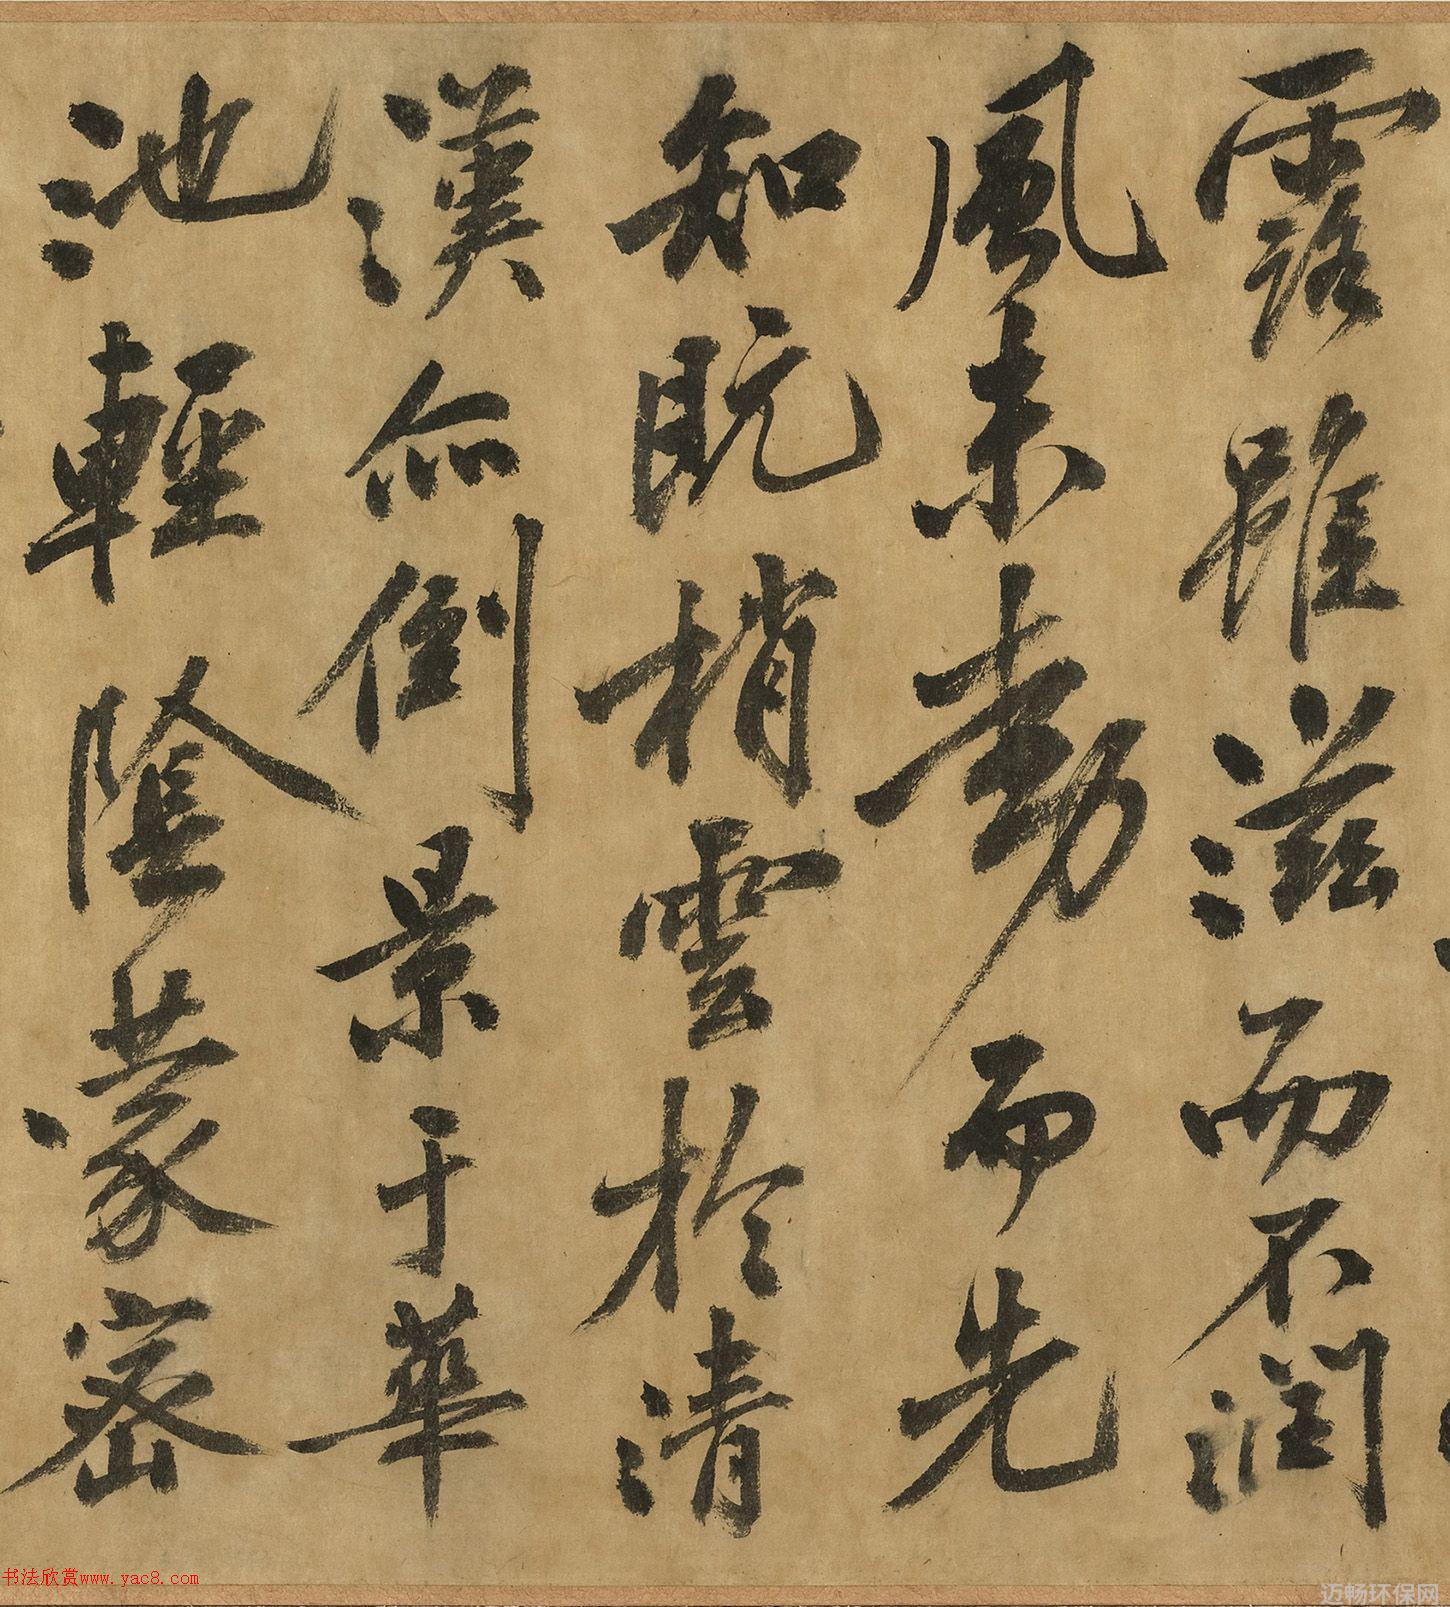 露雖滋而不潤
風未動而先
知既梢雲於清
漢亦倒景于華
池輕陰蒙密
书法欣赏www.yac8.com
迈畅环保网